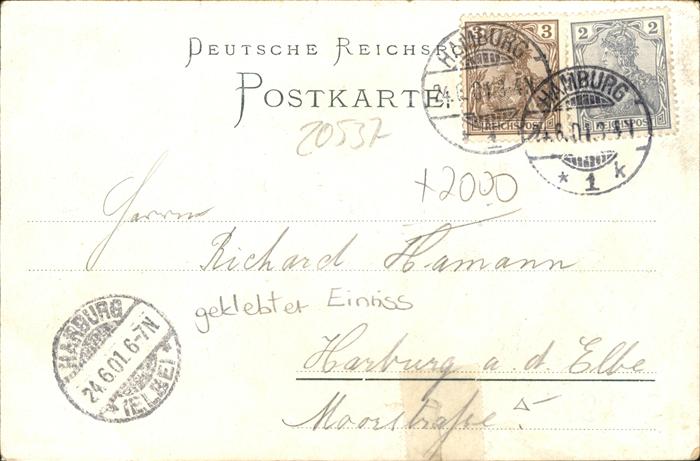 DEUTSCHE REICHSPO
POSTKARTE
3
REICHSPOST
2
REICHSPOST
HAMBURG
24.6.01.
1
HAMBURG
24.6.01.
* 1 k
20537
+2000
Herrn
Richard Hamann
geklebter Einriss
Harburg a. d. Elbe
Moorstraße
HARBURG
24.6.01.6-7N
(ELBE)